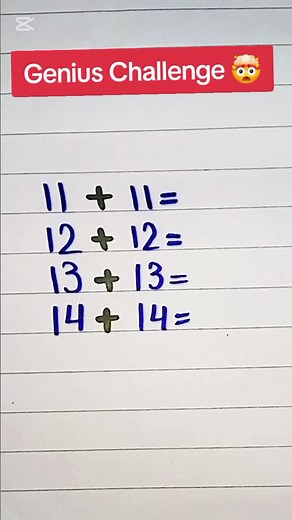 Genius Challenge 🤯
11 + 11=
12 + 12=
13 + 13=
14 + 14=